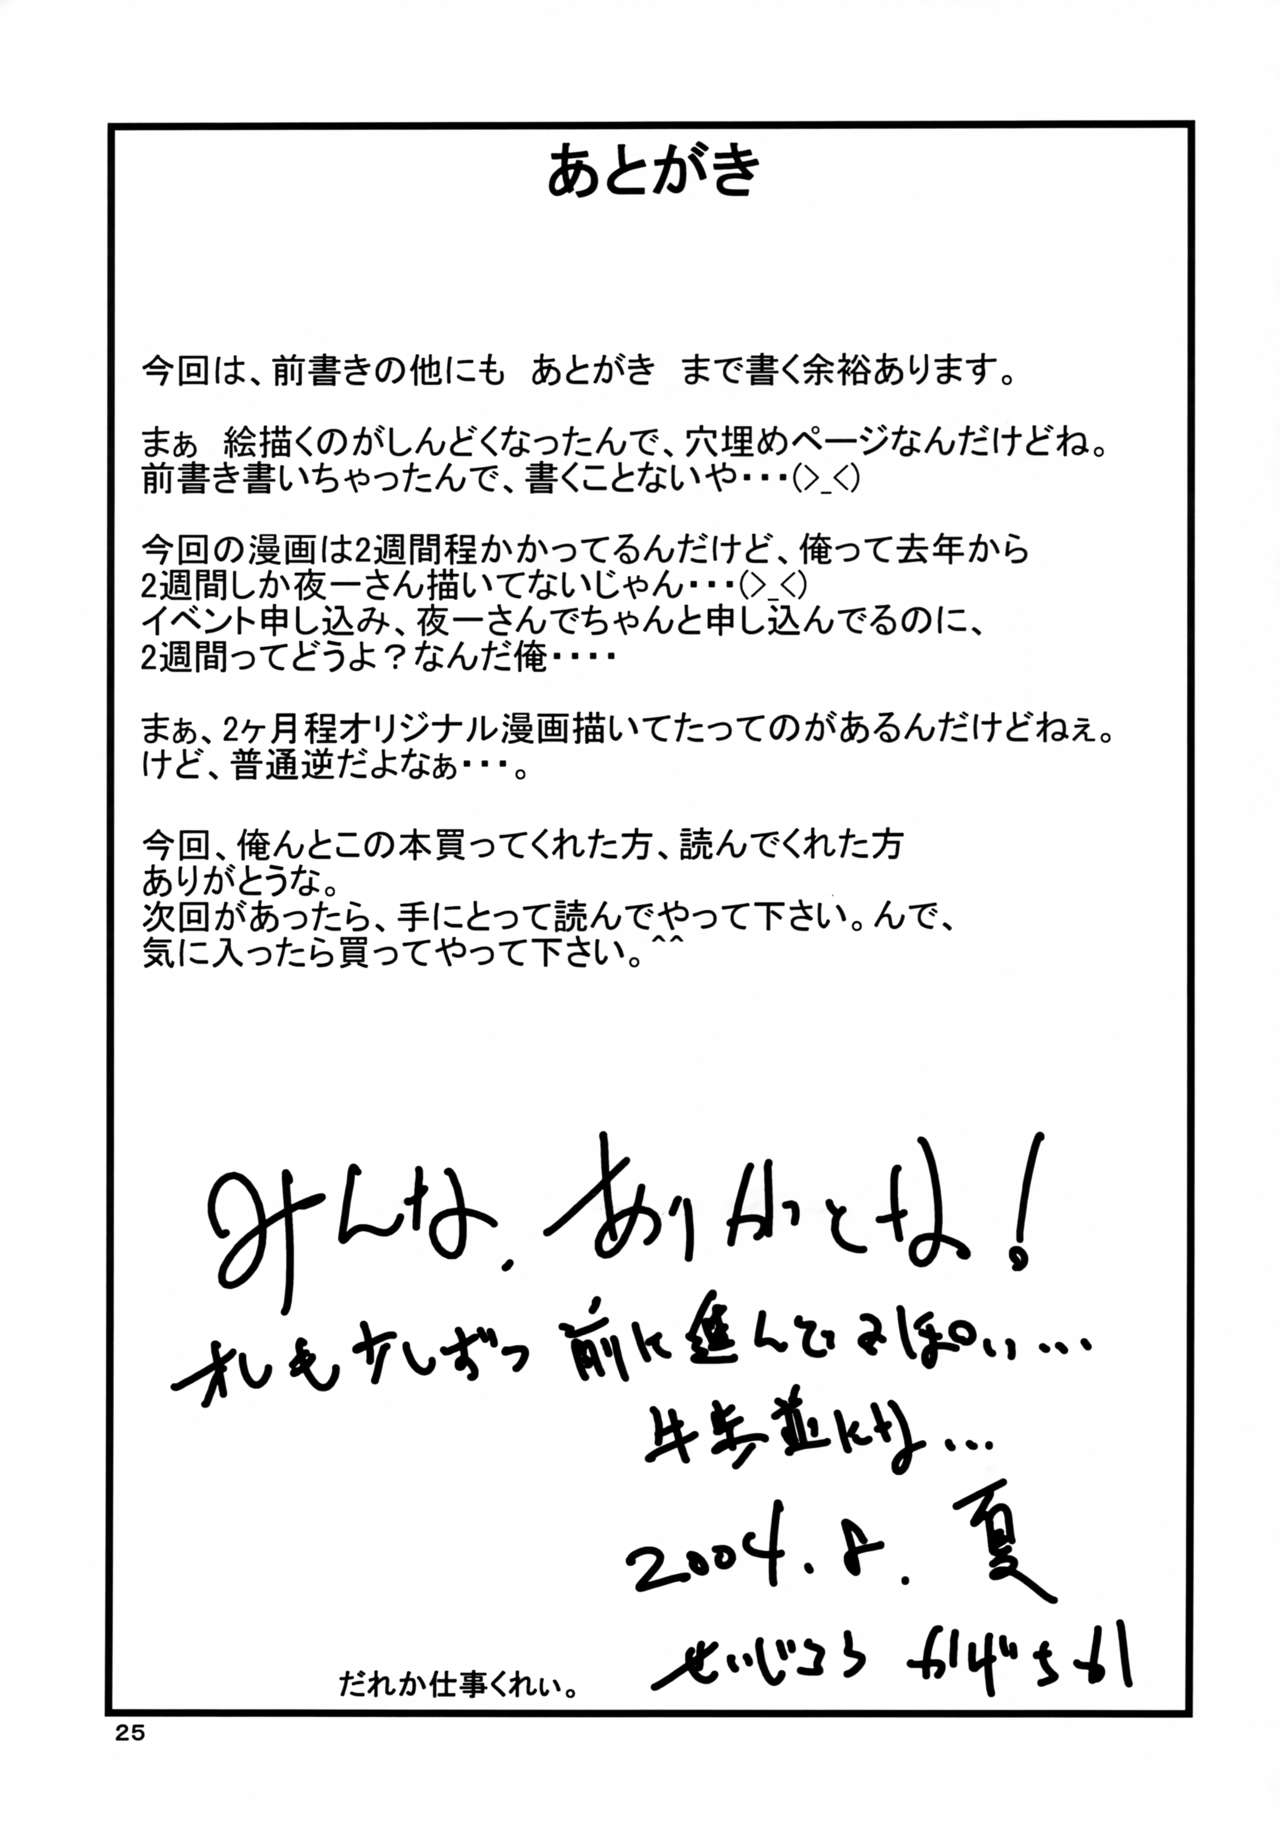 あとがき
今回は、前書きの他にも　あとがき　まで書く余裕あります。
まぁ　絵描くのがしんどくなったんで、穴埋めページなんだけどね。
前書き書いちゃったんで、書くことないや・・・(>_<)
今回の漫画は2週間程かかってるんだけど、俺って去年から
2週間しか夜一さん描いてないじゃん・・・(>_<)
イベント申し込み、夜一さんでちゃんと申し込んでるのに、
2週間ってどうよ？なんだ俺・・・・
まぁ、2ヶ月程オリジナル漫画描いてたってのがあるんだけどねぇ。
けど、普通逆だよなぁ・・・。
今回、俺んとこの本買ってくれた方、読んでくれた方
ありがとうな。
次回があったら、手にとって読んでやって下さい。んで、
気に入ったら買ってやって下さい。^^
みんな、ありがとな!
オレも少しずつ前に進んでるっぽい...
牛歩並にな...
2004.8.夏
せいじろう
だれか仕事くれぃ。
25